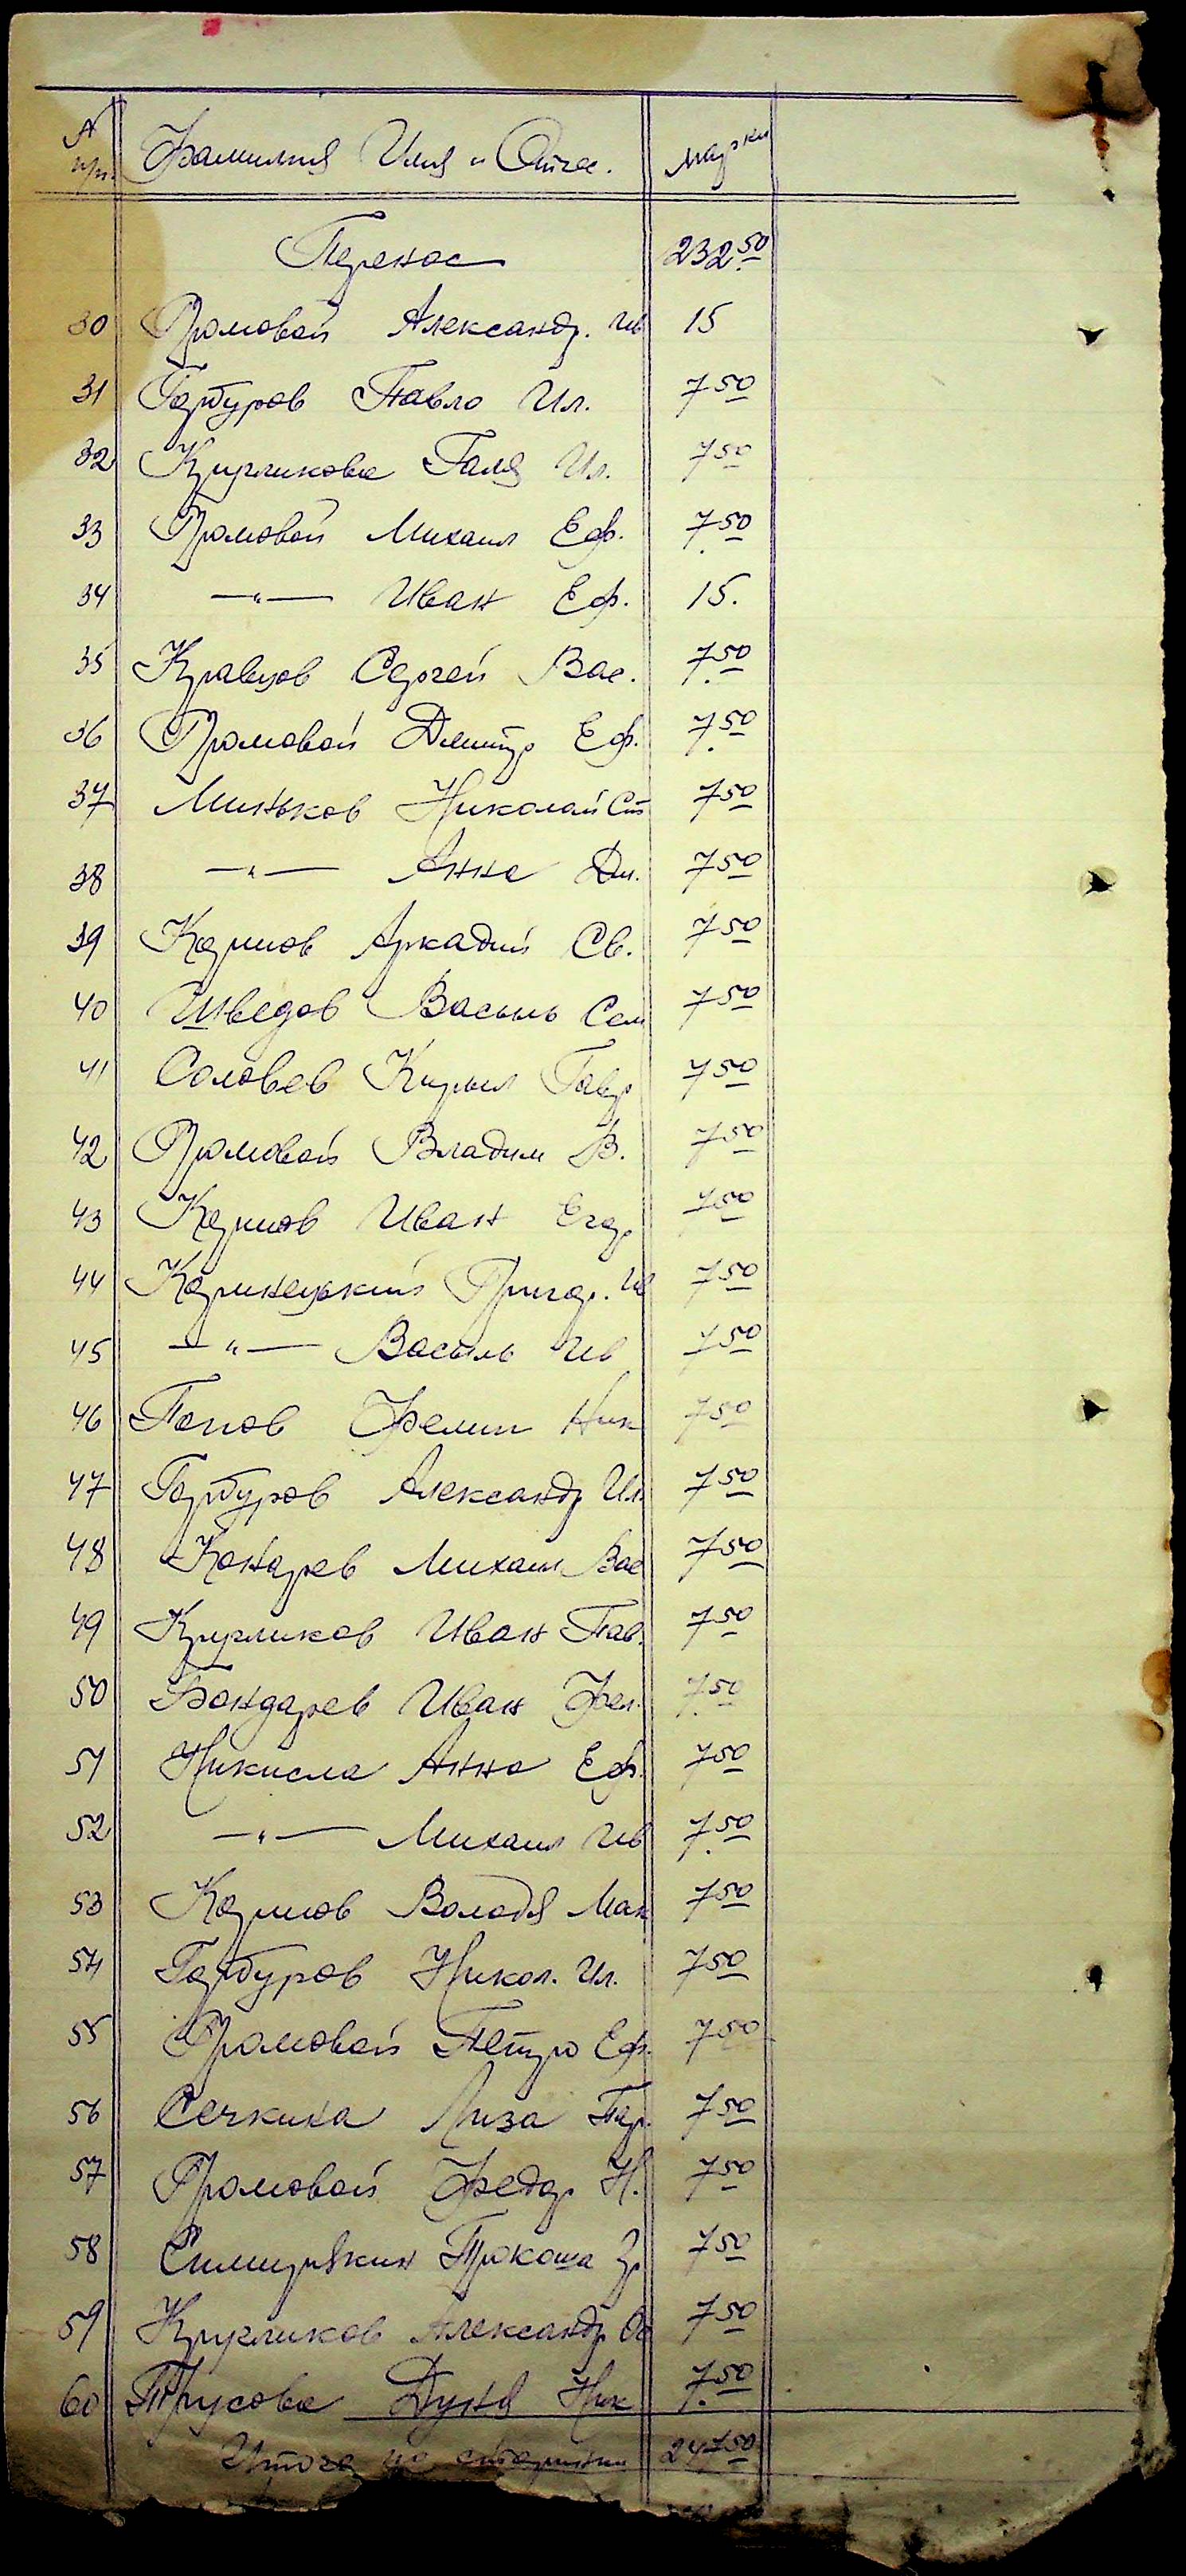 № п/п. Фамилия Имя и Отчес. марки
Перенос 232.50
30 Громовой Александр. Ив 15
31 Гарбуров Павло Ил. 7 50
32 Кругликова Галя Ил. 7 50
33 Громовой Михаил Еф. 7.50
34 —"— Иван Еф. 15.
35 Кравцов Сергей Вас. 7.50
36 Громовой Дмитр Еф. 7.50
37 Миньков Николай Ст 7 50
38 —"— Анна Дм. 7 50
39 Карпов Аркадий Св. 7 50
40 Шведов Василь Сем 7 50
41 Соловев Кирил Гавр 7 50
42 Громовой Владим В. 7 50
43 Карпов Иван Егор 7 50
44 Каринецький Григор. Ив 7 50
45 —"— Василь Ив 7 50
46 Попов Филип Ник 7 50
47 Гарбуров Александр Ил. 7 50
48 Конарев Михаил Вас 7 50
49 Кругликов Иван Пав. 7 50
50 Бондарев Иван Фел. 7.50
51 Анна Еф. 7 50
52 —"— Михаил Ив 7.50
53 Карпов Володя Мак 7 50
54 Гарбуров Никол. Ил. 7 50
55 Громовой Петро Еф. 7 50
56 Сечкина Лиза Гар. 7 50
57 Громовой Федор Н. 7 50
58 Прокоша 7 50
59 Кругликов Александр 7 50
60 Трусова Дуня Ник 7.50
Итога на странице 247 50